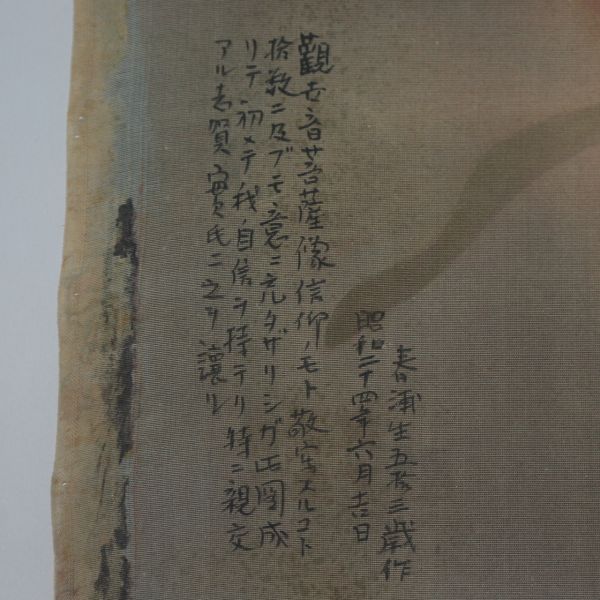 觀世音菩薩像信仰ノモト敬写スルコト
拾数ニ及ブモ意ニ充タザリシガ此圖成
リテ初メテ我自信ヲ持テリ特ニ親交
アル志賀實氏ニ之ヲ讓ル
昭和二十四年六月吉日
春浦生五拾三歳作